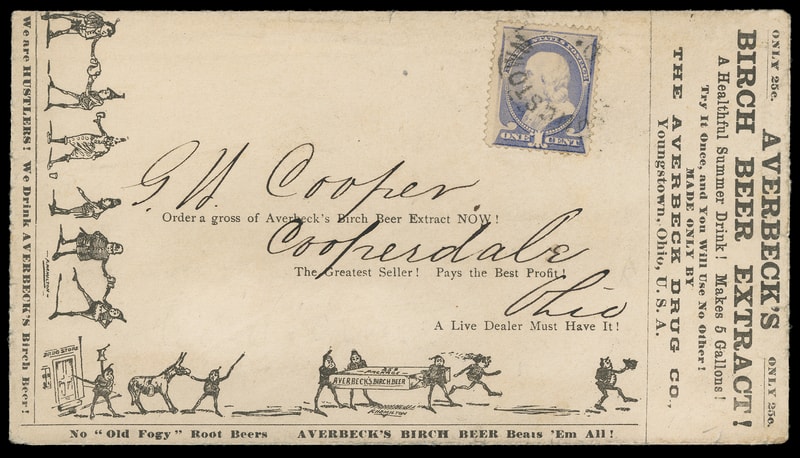 We are HUSTLERS! We Drink AVERBECK'S Birch Beer!
ONE CENT
G. W. Cooper
Order a gross of Averbeck's Birch Beer Extract NOW!
Cooperdale
The Greatest Seller! Pays the Best Profit!
Ohio
A Live Dealer Must Have It!
DRUG STORE
AVERBECK'S BIRCH BEER
No "Old Fogy" Root Beers AVERBECK'S BIRCH BEER Beats 'Em All!
ONLY 25c. AVERBECK'S ONLY 25c.
BIRCH BEER EXTRACT!
A Healthful Summer Drink! Makes 5 Gallons!
Try It Once, and You Will Use No Other!
MADE ONLY BY
THE AVERBECK DRUG CO.,
Youngstown, Ohio, U. S. A.